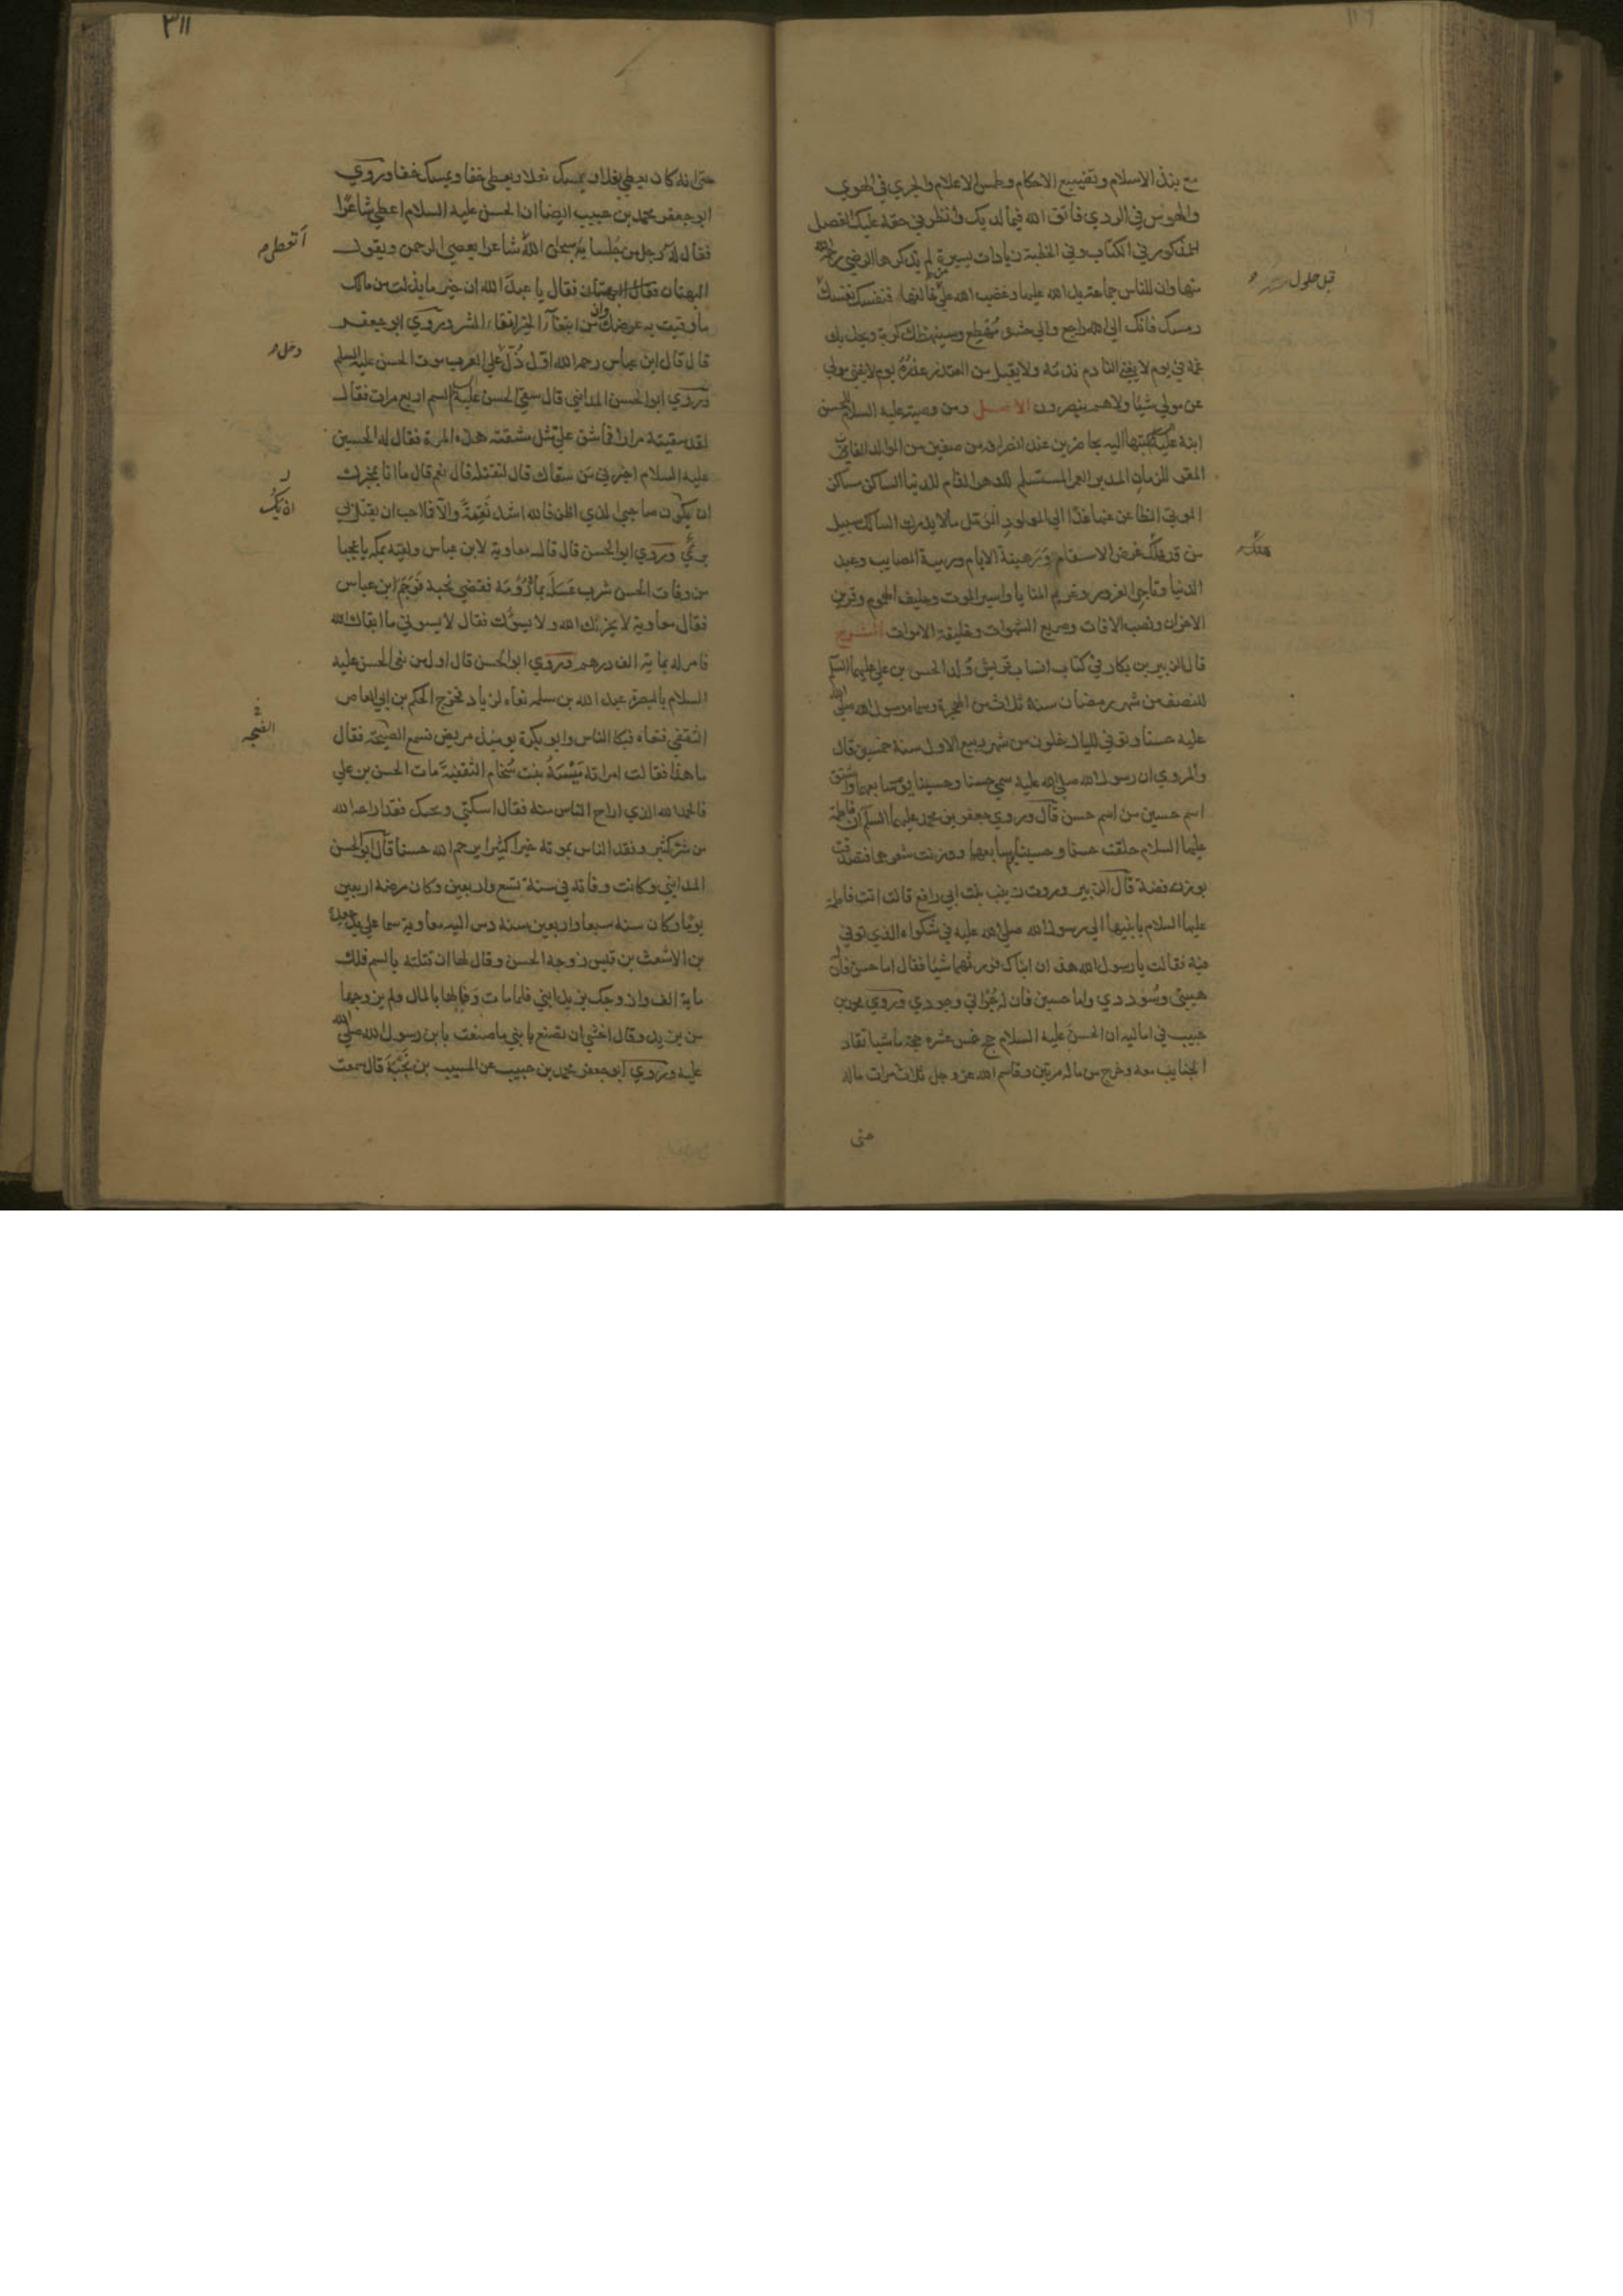 مع بذذ الاسلام وتضييع الاحكام وطمس الاعلام والجري في الهوي
والهوس في الردي فاتق الله فيما لديك وانظر في حقه عليك الفصل
المذكور في الكتاب وفي الخطبة زيادات يسيرة لم يذكرها الرضي رحمه الله
منها وان للناس جماعة يد الله عليها وغضب الله علي من خالفها فنفسك نفسك
قبل حلول
رمسك فانك الي الله راجع والي حشره مهطع وسيبهظك كربه ويحل بك
غمه في يوم لا يغني النادم ندمه ولا يقبل من المعتذر عذره يوم لا يغني مولي
عن مولي شيئا ولا هم ينصرون الاصل ومن وصيته عليه السلام للحسن
ابنه عليه كتبها اليه بحاضرين عند انصرافه من صفين من الوالد الفان
المقر للزمان المدبر العمر المستسلم للدهر الذام للدنيا الساكن مساكن
الموتي الظاعن عنها غدا الي المولود المؤمل ما لا يدرك السالك سبيل
من قد هلك غرض الاسقام ورهينة الايام ورمية المصايب وعبد
الدنيا وتاجر الغرور وغريم المنايا واسير الموت وحليف الهموم وقرين
الاحزان ونصب الافات وصريع الشهوات وخليفة الاموات الشرح
قال الزبير بن بكار في كتاب انساب قريش ولد الحسن بن علي عليهما السلم
للنصف من شهر رمضان سنة ثلاث من الهجرة وسماه رسول الله صلي الله
عليه حسنا وتوفي لليال خلون من شهر ربيع الاول سنة خمسين قال
والمروي ان رسول الله صلي الله عليه سمي حسنا وحسينا يوم سابعهما واشتق
اسم حسين من اسم حسن قال وروي جعفر بن محمد عليهما السلم ان فاطمة
عليها السلام حلقت حسنا وحسينا يوم سابعهما ووزنت شعرهما فتصدقت
بوزنه فضة قال الزبير وروت زينب بنت ابي رافع قالت اتت فاطمة
عليها السلام بابنيها الي رسول الله صلي الله عليه في شكواه الذي توفي
فيه فقالت يا رسول الله هذان ابناك فورثهما شيئا فقال اما حسن فان له
هيبتي وسوددي واما حسين فان له جراتي وجودي وروي محمد بن
حبيب في اماليه ان الحسن عليه السلام حج خمس عشرة حجة ماشيا تقاد
الجنايب معه وخرج من ماله مرتين وقاسم الله عز وجل ثلاث مرات ماله
حتي
٣١١
حتي انه كان يعطي نعلا ويمسك نعلا ويعطي خفا ويمسك خفا وروي
ابو جعفر محمد بن حبيب ايضا ان الحسن عليه السلام اعطي شاعرا
فقال له رجل من جلسايه سبحان الله شاعرا يعصي الرحمن ويقول
أتعطي
البهتان فقال البهتان فقال يا عبد الله ان خير ما بذلت من مالك
ما وقيت به عرضك وان من ابتغاء الخير اتقاء الشر وروي ابو جعفر
قال قال ابن عباس رحمه الله اول ذل علي العرب موت الحسن عليه السلم
دخل
وروي ابو الحسن المدايني قال سقي الحسن عليه السم اربع مرات فقال
لقد سقيته مرارا فما شق علي مثل مشقته هذه المرة فقال له الحسين
عليه السلام اخبرني من سقاك قال لتقتله قال نعم قال ما انا بمخبرك
ان يكون صاحبي الذي اظن فالله اشد نقمة والا فلا احب ان يقتل بي
ان يك
بري وروي ابو الحسن قال قال معاوية لابن عباس ولقيه بمكة يا عجبا
من وفات الحسن شرب عسلة بماء رومة فقضي نحبه فوجم ابن عباس
فقال معاوية لا يحزنك الله ولا يسوك فقال لا يسوني ما ابقاك الله
فامر له بماية الف درهم وروي ابو الحسن قال اول من نعي الحسن عليه
السلام بالبصرة عبد الله بن سلمه نعاه لزياد فخرج الحكم بن ابي العاص
الثقفي فنعاه فبكا الناس وابو بكرة يومئذ مريض فسمع الضجة فقال
الضجه
ما هذا فقالت امراته ميسة بنت سخام الثقفية مات الحسن بن علي
فالحمد لله الذي اراح الناس منه فقال اسكتي ويحك فقد اراحه الله
من شر كثير وفقد الناس بموته خيرا كثيرا يرحم الله حسنا قال ابو الحسن
المدايني وكانت وفاته في سنة تسع واربعين وكان مرضه اربعين
يوما وكان سنه سبعا واربعين سنة دس اليه معاوية سما علي يد جعدة
بن الاشعث بن قيس زوجة الحسن وقال لها ان قتلته بالسم فلك
ماية الف وازوجك يزيد ابني فلما مات وفي لها بالمال ولم يزوجها
من يزيد وقال اخشي ان تصنع بابني ما صنعت بابن رسول الله صلي الله
عليه وروي ابو جعفر محمد بن حبيب عن المسيب بن نجبة قال سمعت